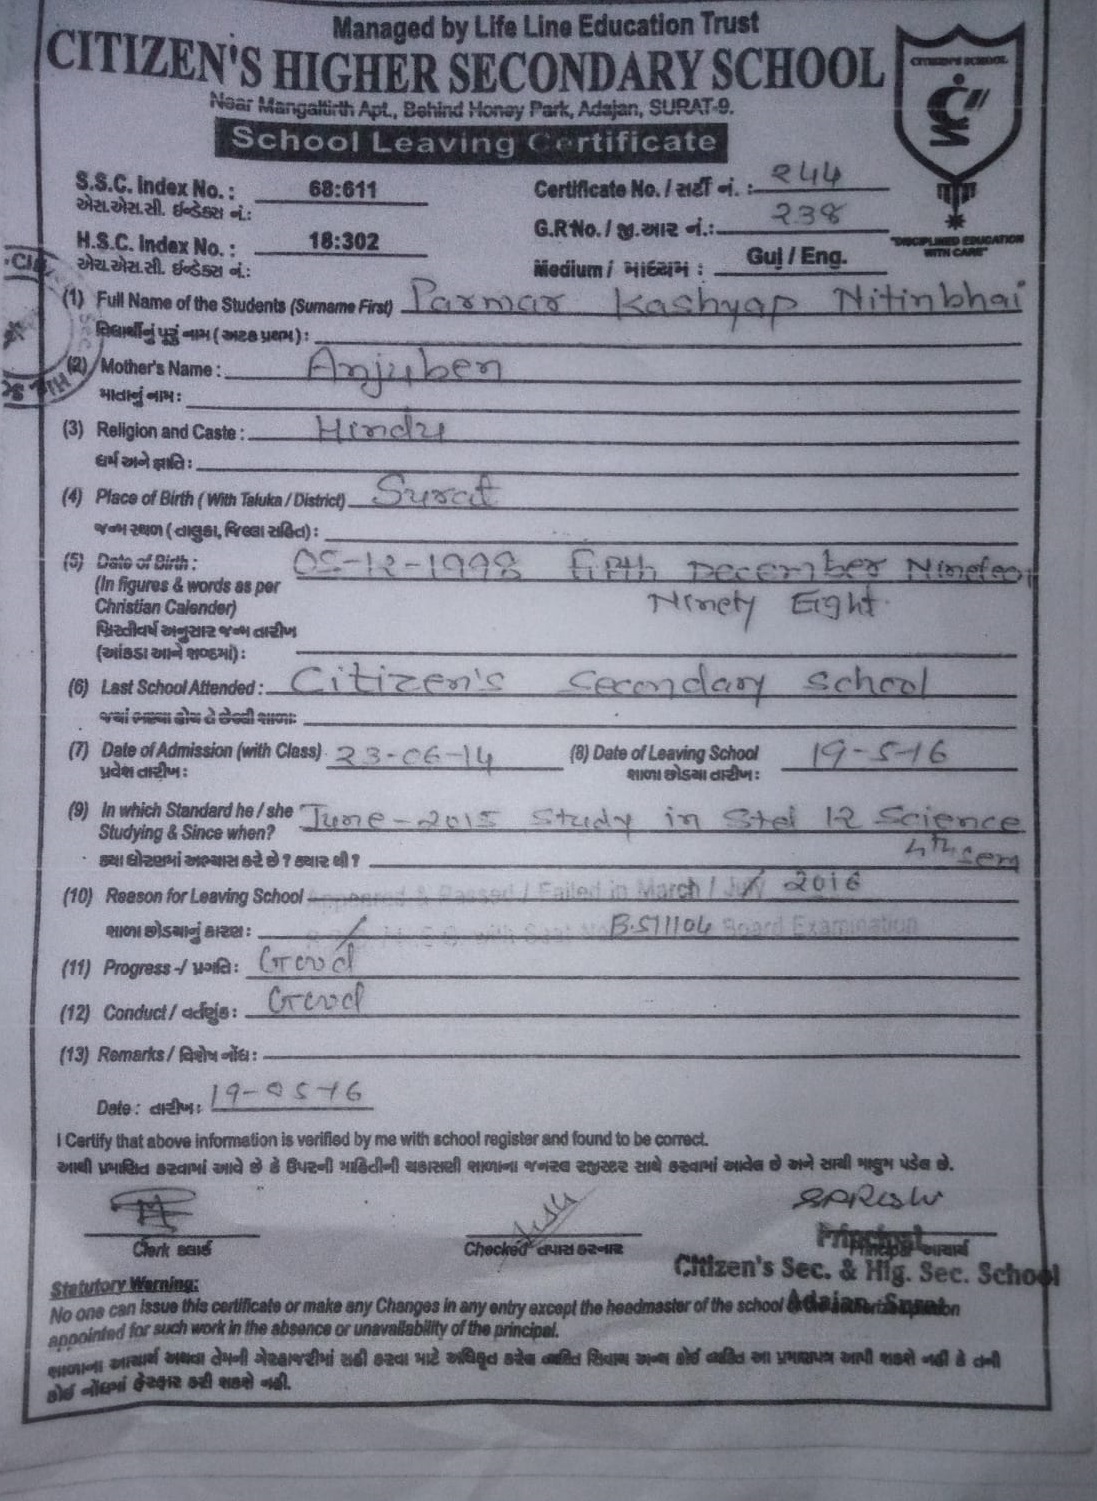 Managed by Life Line Education Trust
CITIZEN'S HIGHER SECONDARY SCHOOL
Near Mangaltirth Apt., Behind Honey Park, Adajan, SURAT-9.
School Leaving Certificate
CITIZEN'S SCHOOL
"DISCIPLINED EDUCATION WITH CARE"
S.S.C. Index No. : 68:611
એસ.એસ.સી. ઈન્ડેક્ષ નં.:
H.S.C. Index No. : 18:302
એચ.એસ.સી. ઈન્ડેક્ષ નં.:
Certificate No. / સર્ટી નં. : 244
G.R No. / જી.આર નં.: 238
Medium / માધ્યમ : Guj / Eng.
(1) Full Name of the Students (Surname First) Parmar Kashyap Nitinbhai
વિદ્યાર્થીનું પૂરું નામ ( અટક પ્રથમ ) :
(2) Mother's Name : Anjuben
માતાનું નામ :
(3) Religion and Caste : Hindu
ધર્મ અને જ્ઞાતિ :
(4) Place of Birth ( With Taluka / District) Surat
જન્મ સ્થળ ( તાલુકા, જિલ્લા સહિત) :
(5) Date of Birth : 05-12-1998 fifth December Nineteen
(In figures & words as per Ninety Eight
Christian Calender)
ખ્રિસ્તીવર્ષ અનુસાર જન્મ તારીખ
(આંકડા આને શબ્દમાં) :
(6) Last School Attended : Citizen's Secondary School
જ્યાં ભણ્યા હોય તે છેલ્લી શાળાઃ
(7) Date of Admission (with Class) 23-06-14 (8) Date of Leaving School 19-5-16
પ્રવેશ તારીખ : શાળા છોડયા તારીખ :
(9) In which Standard he / she June-2015 Study in Std 12 Science
Studying & Since when? 4th sem
કયા ધોરણમાં અભ્યાસ કરે છે ? ક્યાર થી ?
(10) Reason for Leaving School Appeared & Passed / Failed in March / July 2016
શાળા છોડયાનું કારણ : with Seat No B.511104 Board Examination
(11) Progress -/ પ્રગતિ : Good
(12) Conduct / વર્તણુંક : Good
(13) Remarks / વિશેષ નોંધ :
Date : તારીખ : 19-05-16
I Certify that above information is verified by me with school register and found to be correct.
આથી પ્રમાણિત કરવામાં આવે છે કે ઉપરની માહિતીની ચકાસણી શાળાના જનરલ રજીસ્ટર સાથે કરવામાં આવેલ છે અને સાચી માલુમ પડેલ છે.
Clerk કલાર્ક Checked તપાસ કરનાર Principal આચાર્ય
Principal
Citizen's Sec. & Hig. Sec. School
Adajan, Surat
Statutory Warning:
No one can issue this certificate or make any Changes in any entry except the headmaster of the school
appointed for such work in the absence or unavailability of the principal.
શાળાના આચાર્ય અથવા તેમની ગેરહાજરીમાં સહી કરવા માટે અધિકૃત કરેલ વ્યકિત સિવાય અન્ય કોઈ વ્યકિત આ પ્રમાણપત્ર આપી શકશે નહી કે તની
કોઈ નોંધમાં ફેરફાર કરી શકશે નહી.